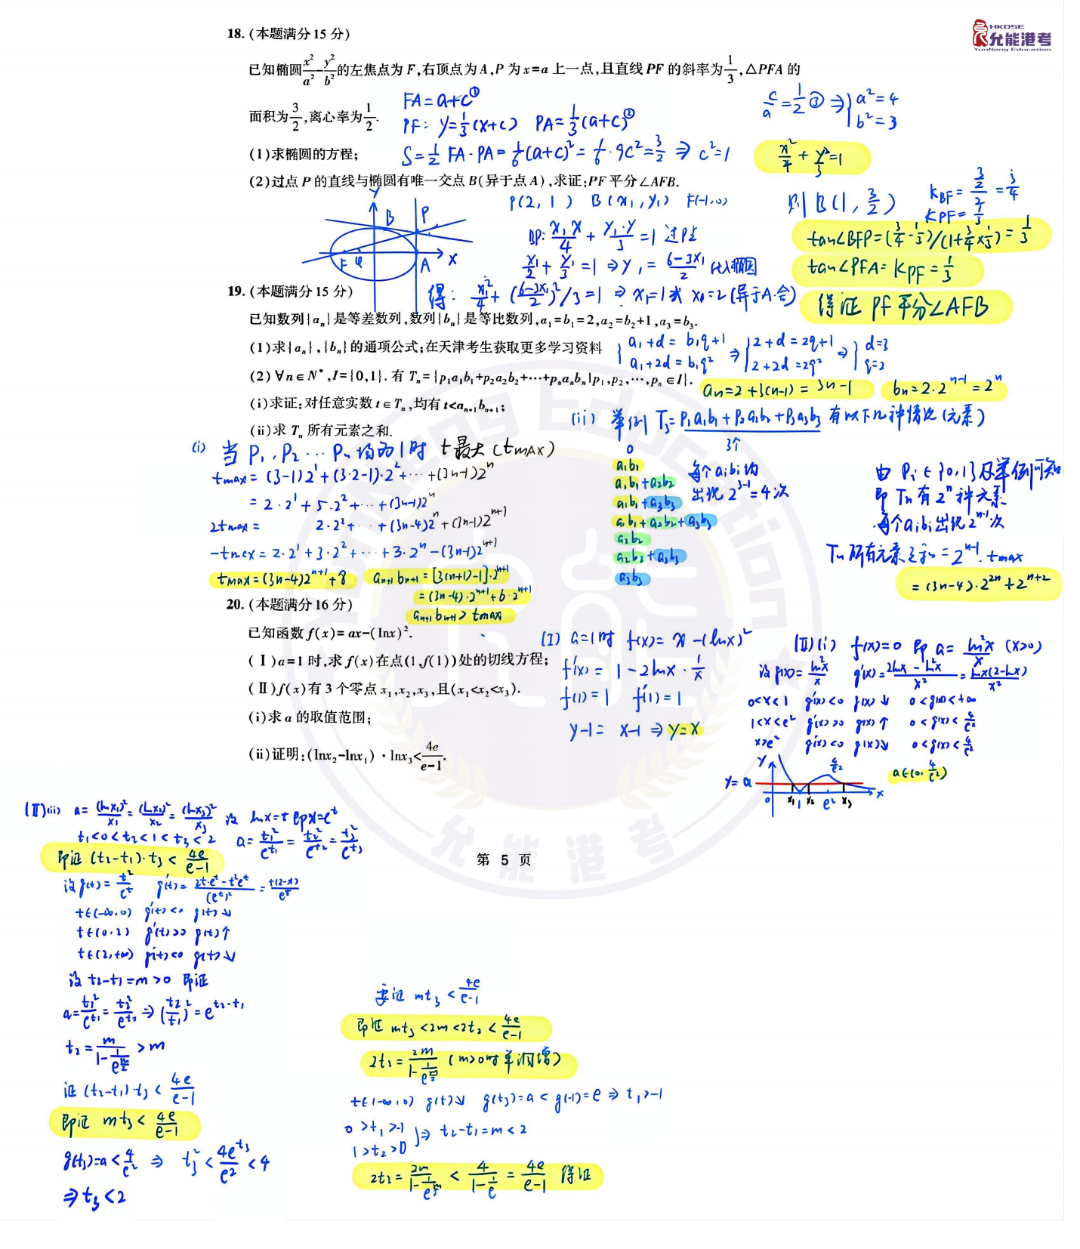 HKDSE
允能港考
Yunneng Education
18. (本题满分15分)
已知椭圆x²/a² - y²/b²的左焦点为F,右顶点为A,P为x=a上一点,且直线PF的斜率为1/3,△PFA的
面积为3/2,离心率为1/2.
(1)求椭圆的方程;
(2)过点P的直线与椭圆有唯一交点B(异于点A),求证:PF平分∠AFB.
FA=a+c①
PF: y=1/3(x+c) PA=1/3(a+c)②
S=1/2 FA·PA=1/6(a+c)²=1/6·9c²=3/2 ⇒ c²=1
c/a=1/2③ ⇒ {a²=4
b²=3
x²/4+y²/3=1
P(2,1) B(x₁,y₁) F(-1,0)
BP: x₁x/4+y₁y/3=1 过P点
x₁/2+y₁/3=1 ⇒ y₁=(6-3x₁)/2 代入椭圆
得: x₁²/4+((6-3x₁)/2)²/3=1 ⇒ x₁=1或 x₁=2(异于A·舍)
则B(1,3/2) K_BF=(3/2)/2=3/4
K_PF=1/3
tan∠BFP=(3/4-1/3)/(1+3/4×1/3)=1/3
tan∠PFA=K_PF=1/3
得证 PF平分∠AFB
y B P F A x
19. (本题满分15分)
已知数列{aₙ}是等差数列,数列{bₙ}是等比数列,a₁=b₁=2,a₂=b₂+1,a₃=b₃.
(1)求{aₙ},{bₙ}的通项公式;在天津考生获取更多学习资料
{a₁+d=b₁q+1
a₁+2d=b₁q² ⇒ {2+d=2q+1
2+2d=2q² ⇒ {d=3
q=2
(2)∀n∈N*,I={0,1}.有Tₙ={p₁a₁b₁+p₂a₂b₂+⋯+pₙaₙbₙ|p₁,p₂,⋯,pₙ∈I}.
aₙ=2+3(n-1)=3n-1 bₙ=2·2ⁿ⁻¹=2ⁿ
(i)求证:对任意实数t∈Tₙ,均有t<aₙ₊₁bₙ₊₁;
(ii)求Tₙ所有元素之和.
(i) 当P₁,P₂⋯Pₙ均为1时 t最大(tmax)
tmax=(3-1)2¹+(3·2-1)·2²+⋯+(3n-1)2ⁿ
=2·2¹+5·2²+⋯+(3n-1)2ⁿ
2tmax= 2·2²+⋯+(3n-4)2ⁿ+(3n-1)2ⁿ⁺¹
-tmax=2·2¹+3·2²+⋯+3·2ⁿ-(3n-1)2ⁿ⁺¹
tmax=(3n-4)2ⁿ⁺¹+8 aₙ₊₁bₙ₊₁=[3(n+1)-1]·2ⁿ⁺¹
=(3n-4)·2ⁿ⁺¹+6·2ⁿ⁺¹
aₙ₊₁bₙ₊₁>tmax
(ii) 举例 T₃=P₁a₁b₁+P₂a₂b₂+P₃a₃b₃ 有以下几种情况(元素)
3个
0
a₁b₁
a₁b₁+a₂b₂
a₁b₁+a₃b₃
a₁b₁+a₂b₂+a₃b₃
a₂b₂
a₂b₂+a₃b₃
a₃b₃
每个aᵢbᵢ均
出现2³⁻¹=4次
由Pᵢ∈{0,1}及举例可知
即Tₙ有2ⁿ种元素
每个aᵢbᵢ出现2ⁿ⁻¹次
Tₙ所有元素之和=2ⁿ⁻¹·tmax
=(3n-4)·2²ⁿ+2ⁿ⁺²
20. (本题满分16分)
已知函数f(x)=ax-(lnx)².
(Ⅰ)a=1时,求f(x)在点(1,f(1))处的切线方程;
(Ⅱ)f(x)有3个零点x₁,x₂,x₃,且(x₁<x₂<x₃).
(i)求a的取值范围;
(ii)证明:(lnx₂-lnx₁)·lnx₃<4e/(e-1).
(I) a=1时 f(x)=x-(lnx)²
f'(x)=1-2lnx·1/x
f(1)=1 f'(1)=1
y-1=x-1 ⇒ y=x
(Ⅱ)(i) f(x)=0 即 a=ln²x/x (x>0)
设g(x)=ln²x/x g'(x)=(2lnx-ln²x)/x²=lnx(2-lnx)/x²
0<x<1 g'(x)<0 g(x)↓ 0<g(x)<+∞
1<x<e² g'(x)>0 g(x)↑ 0<g(x)<4/e²
x>e² g'(x)<0 g(x)↓ 0<g(x)<4/e²
y 4/e² y=a 0 x₁ 1 x₂ e² x₃ x
a∈(0,4/e²)
(Ⅱ)(ii) a=(lnx₁)²/x₁=(lnx₂)²/x₂=(lnx₃)²/x₃ 设lnx=t 即x=eᵗ
t₁<0<t₂<1<t₃<2 a=t₁²/e^t₁=t₂²/e^t₂=t₃²/e^t₃
即证(t₂-t₁)·t₃<4e/(e-1)
设g(t)=t²/eᵗ g'(t)=(2t·eᵗ-t²eᵗ)/(eᵗ)²=t(2-x)/eᵗ
t∈(-∞,0) g'(t)<0 g(t)↓
t∈(0,2) g'(t)>0 g(t)↑
t∈(2,+∞) g'(t)<0 g(t)↓
设t₂-t₁=m>0 即证
a=t₁²/e^t₁=t₂²/e^t₂ ⇒ (t₂/t₁)²=e^(t₂-t₁)
证(t₂-t₁)·t₃<4e/(e-1)
即证 mt₃<4e/(e-1)
g(t₃)=a<4/e² ⇒ t₃²<4e^t₃/e²<4
⇒t₃<2
要证 mt₃<4e/(e-1)
即证 mt₃<2m<2t₂<4e/(e-1)
t∈(-∞,0) g(t)↓ g(t₁)=a<g(-1)=e ⇒ t₁>-1
0>t₁>-1
1>t₂>0 }⇒ t₂-t₁=m<2
得证
第 5 页
允能港考